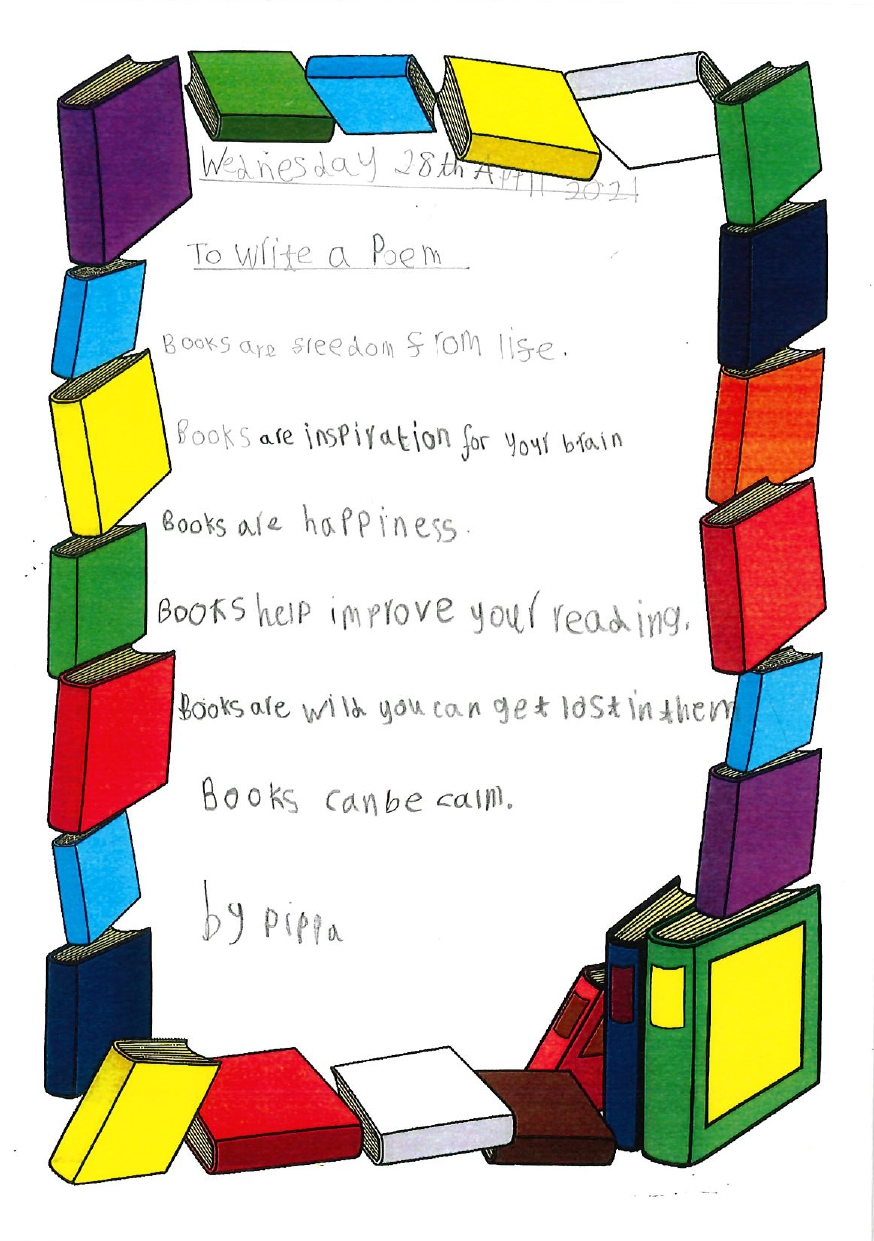 Wednesday 28th April 2021
To write a Poem
Books are freedom from life.
Books are inspiration for your brain
Books are happiness.
Books help improve your reading.
Books are wild you can get lost in them
Books can be calm.
by pippa